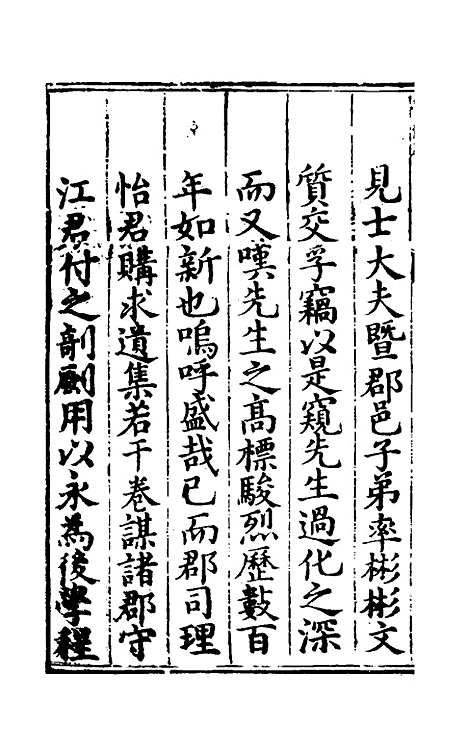 見士大夫暨郡邑子弟率彬彬文
質交孚竊以是窺先生過化之深
而又嘆先生之高標駿烈歷數百
年如新也嗚呼盛哉已而郡司理
怡君購求遺集若干卷謀諸郡守
江君付之剞劂用以永為後學程